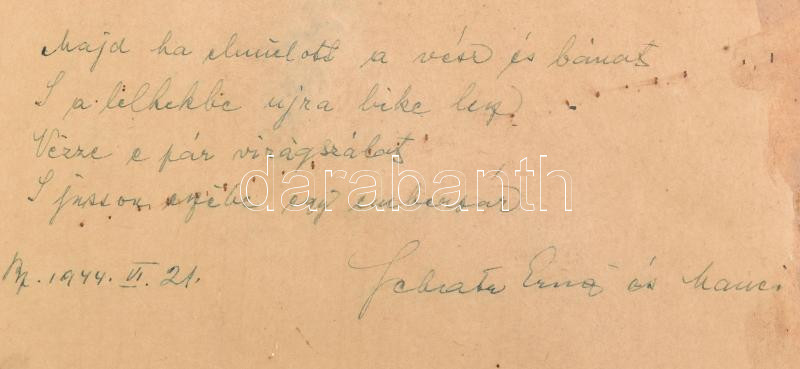 Majd ha elmúlott a vész és bánat
S a lelkekbe ujra béke lesz
Nézze e pár virágszálat
S jusson eszébe egy
darabanth
Bp. 1944. VI. 21.
Ernő és Manci